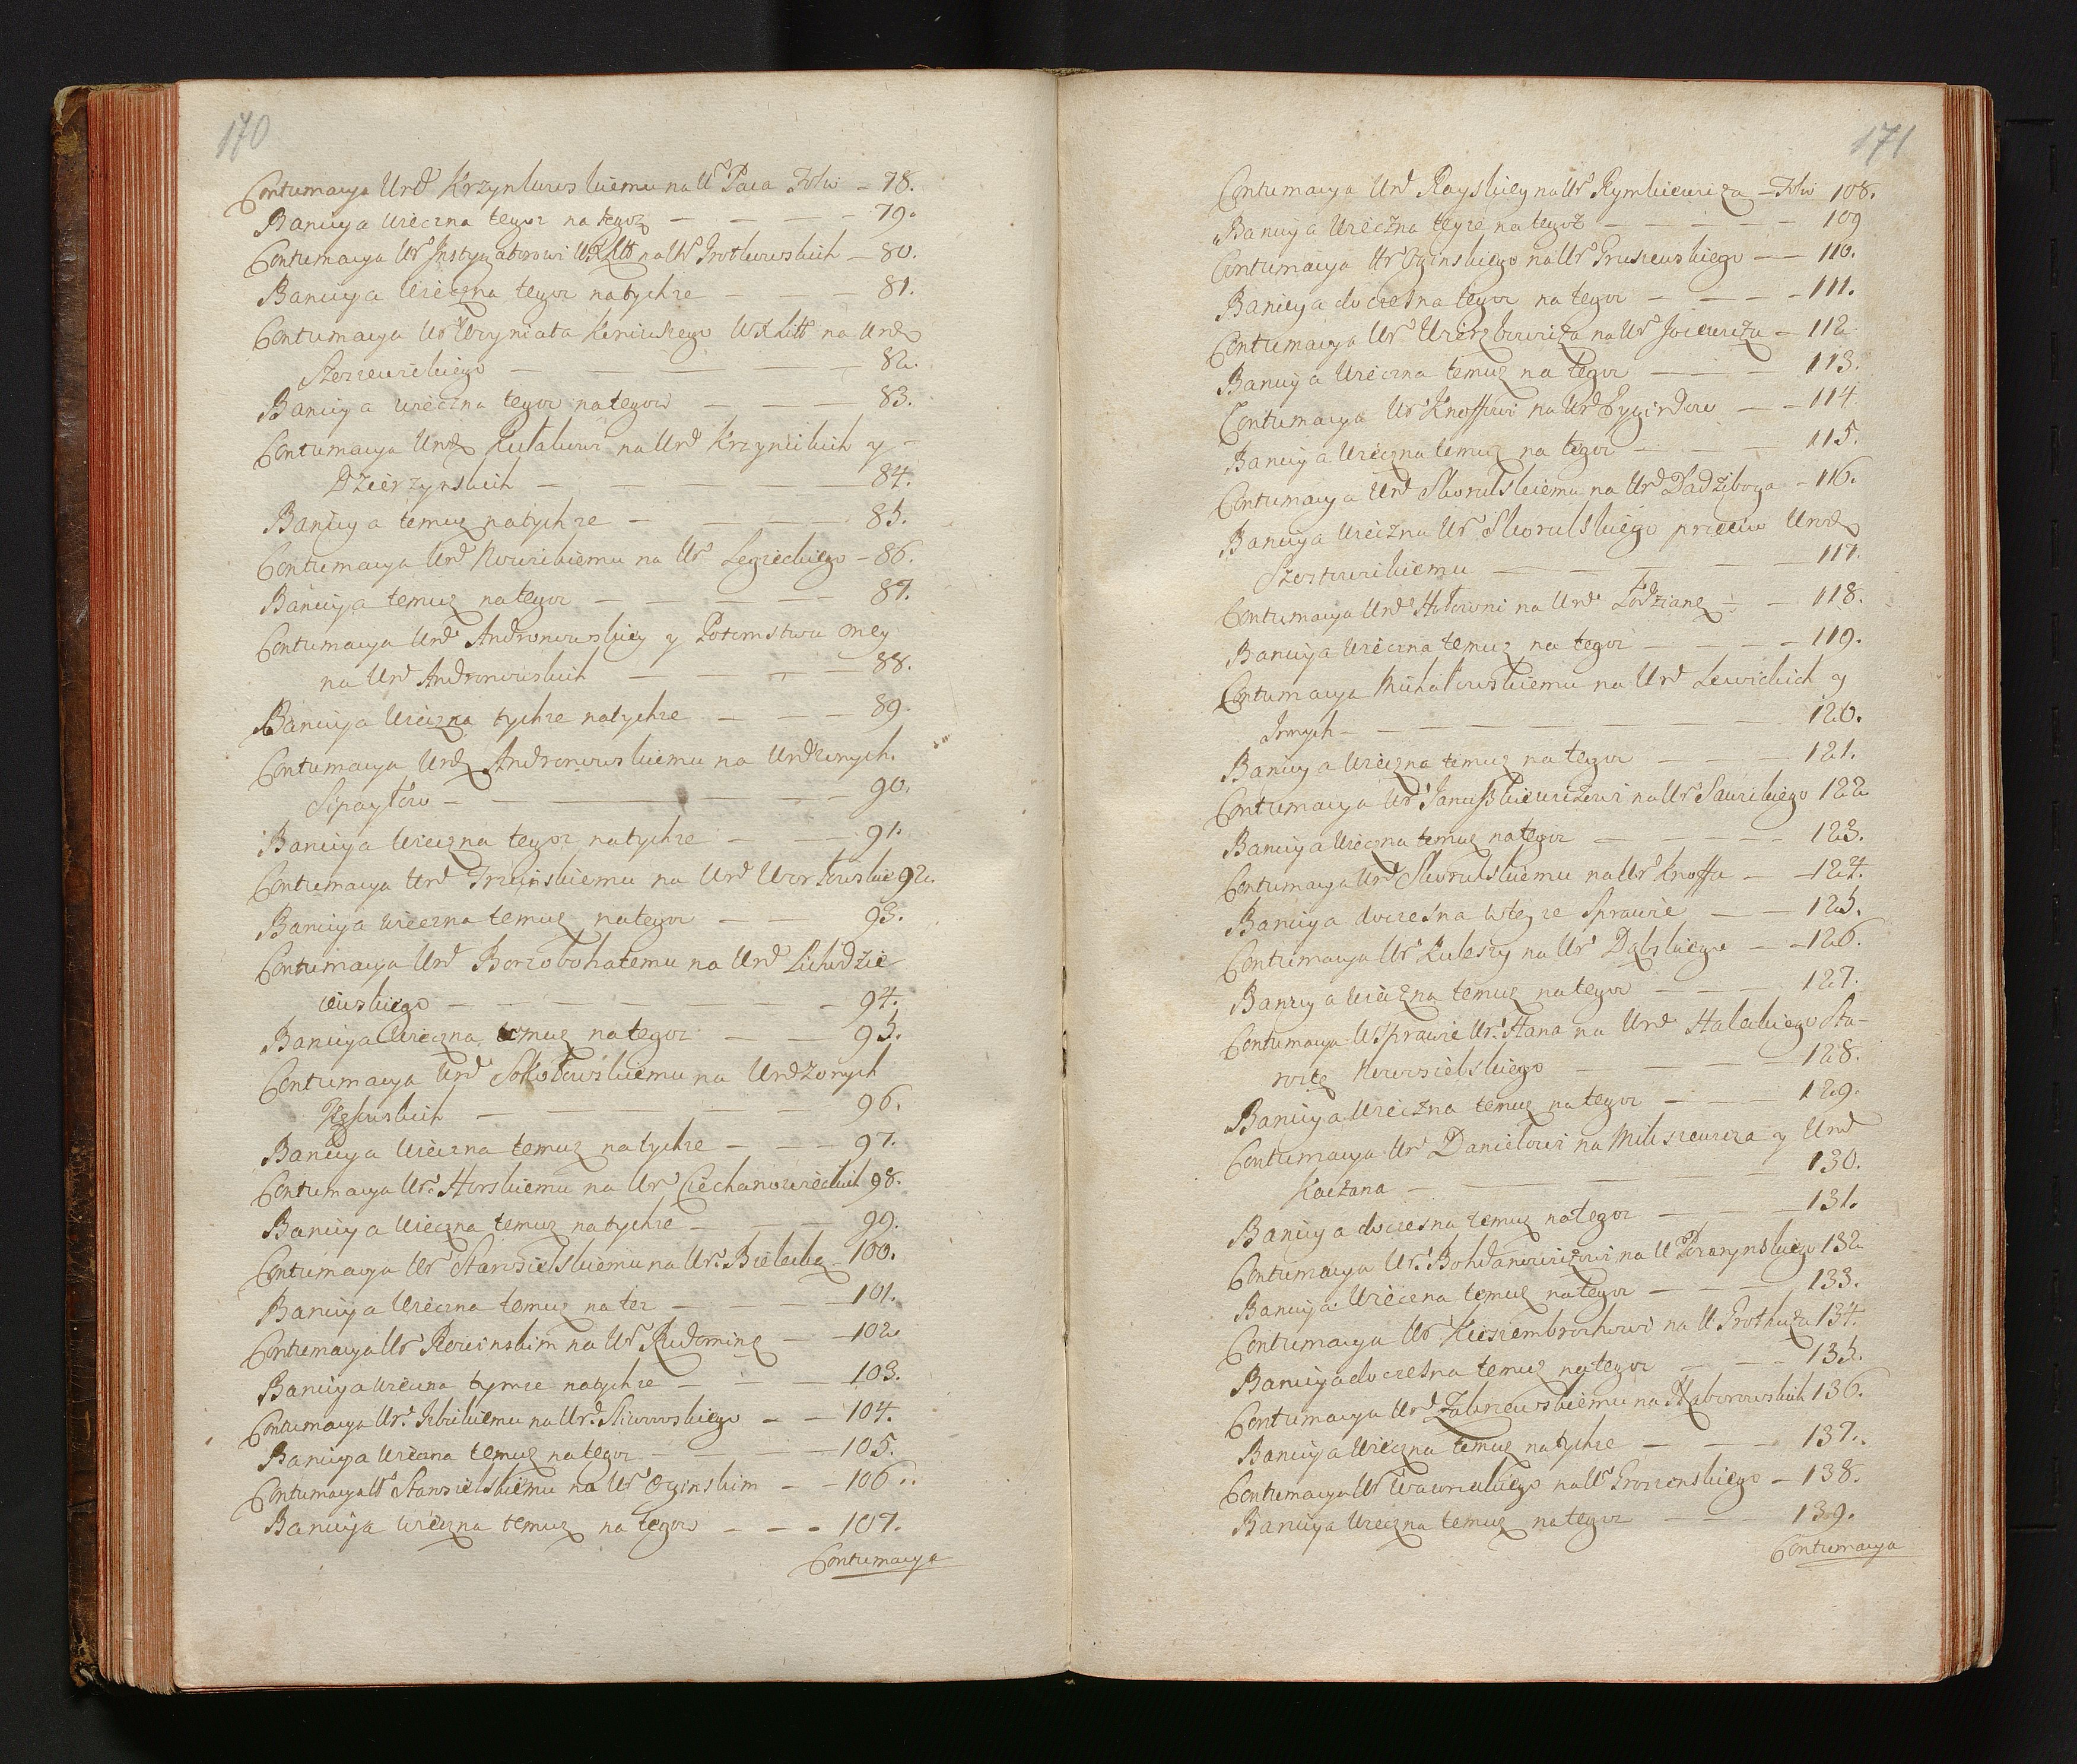 170
Contumacya Urd Krzynkowskiemu na Ur Paca Fol. – 78.
Banicya wieczna tegoz na tegoz – 79.
Contumacya Ur Instygatorowi WXLitt na Ur Grotkowskich – 80.
Banicya Wieczna tegoz na tychze – 81.
Contumacya Ur WXLitt na Urd
– 82.
Banicya wieczna tegoz na tegoz – 83.
Contumacya Urd na Urd y
Dzierzynskich – 84.
Banicya temuz na tychze – 85.
Contumacya Urd Nowickiemu na Ur – 86.
Banicya temuz na tegoz – 87.
Contumacya Urd Andronowskiey y Potomstwu oney
na Urd Andronowskich – 88.
Banicya Wieczna tychze na tychze – 89.
Contumacya Urd Andronowskiemu na Urdzonych
Sipayłow – 90.
Banicya Wieczna tegoz na tychze – 91.
Contumacya Urd na Urd 92.
Banicya wieczna temuz na tegoz – 93.
Contumacya Urd Borzobohatemu na Urd Lichodzie
iewskiego – 94.
Banicya Wieczna temuz na tegoz – 95.
Contumacya Urd Sokołowskiemu na Urdzonych
– 96.
Banicya Wieczna temuz na tychze – 97.
Contumacya Ur Horskiemu na Ur Ciechanowieckich 98.
Banicya Wieczna temuz na tychze – 99.
Contumacya Ur Stanzielskiemu na Ur Bielacką 100.
Banicya Wieczna temuz na tez – 101.
Contumacya Ur na Ur Rudominę – 102
Banicya wieczna tymze na tychze – 103.
Contumacya Ur na Ur – 104.
Banicya Wieczna temuz na tegoz – 105.
Contumacya Ur Stanzielskiemu na Ur Oginskim – 106.
Banicya wieczna temuz na tegoz – 107.
Contumacya
171
Contumacya Urd Rayskiey na Ur Rymkiewicza – Fol. 108.
Banicya Wieczna teyze na tegoz – 109
Contumacya Ur Oginskiego na Ur Gruzewskiego – 110.
Banicya doczesna tegoz na tegoz – 111.
Contumacya Ur Wierzbowicza na Ur – 112
Banicya Wieczna temuz na tegoz – 113.
Contumacya Ur Knoffowi na Urd – 114
Banicya Wieczna temuz na tegoz – 115.
Contumacya Urd Skorulskiemu na Urd Dadziboga – 116.
Banicya Wieczna Ur Skorulskiego przeciw Urd
Szostowickiemu – 117.
Contumacya Urd Hołowni na Urd Łodzianę – 118.
Banicya Wieczna temuz na tegoz – 119.
Contumacya Michałowskiemu na Urd Lewickich y
Innych – 120.
Banicya Wieczna temuz na tegoz – 121.
Contumacya Ur Januszkiewiczowi na Ur Sawickiego 122
Banicya Wieczna temuz na tegoz – 123.
Contumacya Urd Skorulskiemu na Ur Knoffa – 124.
Banicya doczesna wteyze Sprawie – 125.
Contumacya Ur Kuleszy na Ur Dąbskiego – 126.
Banicya Wieczna temuz na tegoz – 127.
Contumacya W Sprawie Ur Hana na Urd Haleckiego Sta-
rostę Nowosielskiego – 128.
Banicya Wieczna temuz na tegoz – 129.
Contumacya Ur Danielowi na Miliszewicza y Urd
Kaczana – 130.
Banicya doczesna temuz na tegoz – 131.
Contumacya Ur Bohdanowiczowi na U 132
Banicya Wieczna temuz na tegoz – 133.
Contumacya Ur Kieszembrochowi na U Grothuza 134.
Banicya doczesna temuz na tegoz – 135.
Contumacya Urd Zakrzewskiemu na Naborowskich 136.
Banicya Wieczna temuz na tychze – 137.
Contumacya Ur Wawrzeckiego na Ur – 138.
Banicya Wieczna temuz na tegoz – 139.
Contumacya